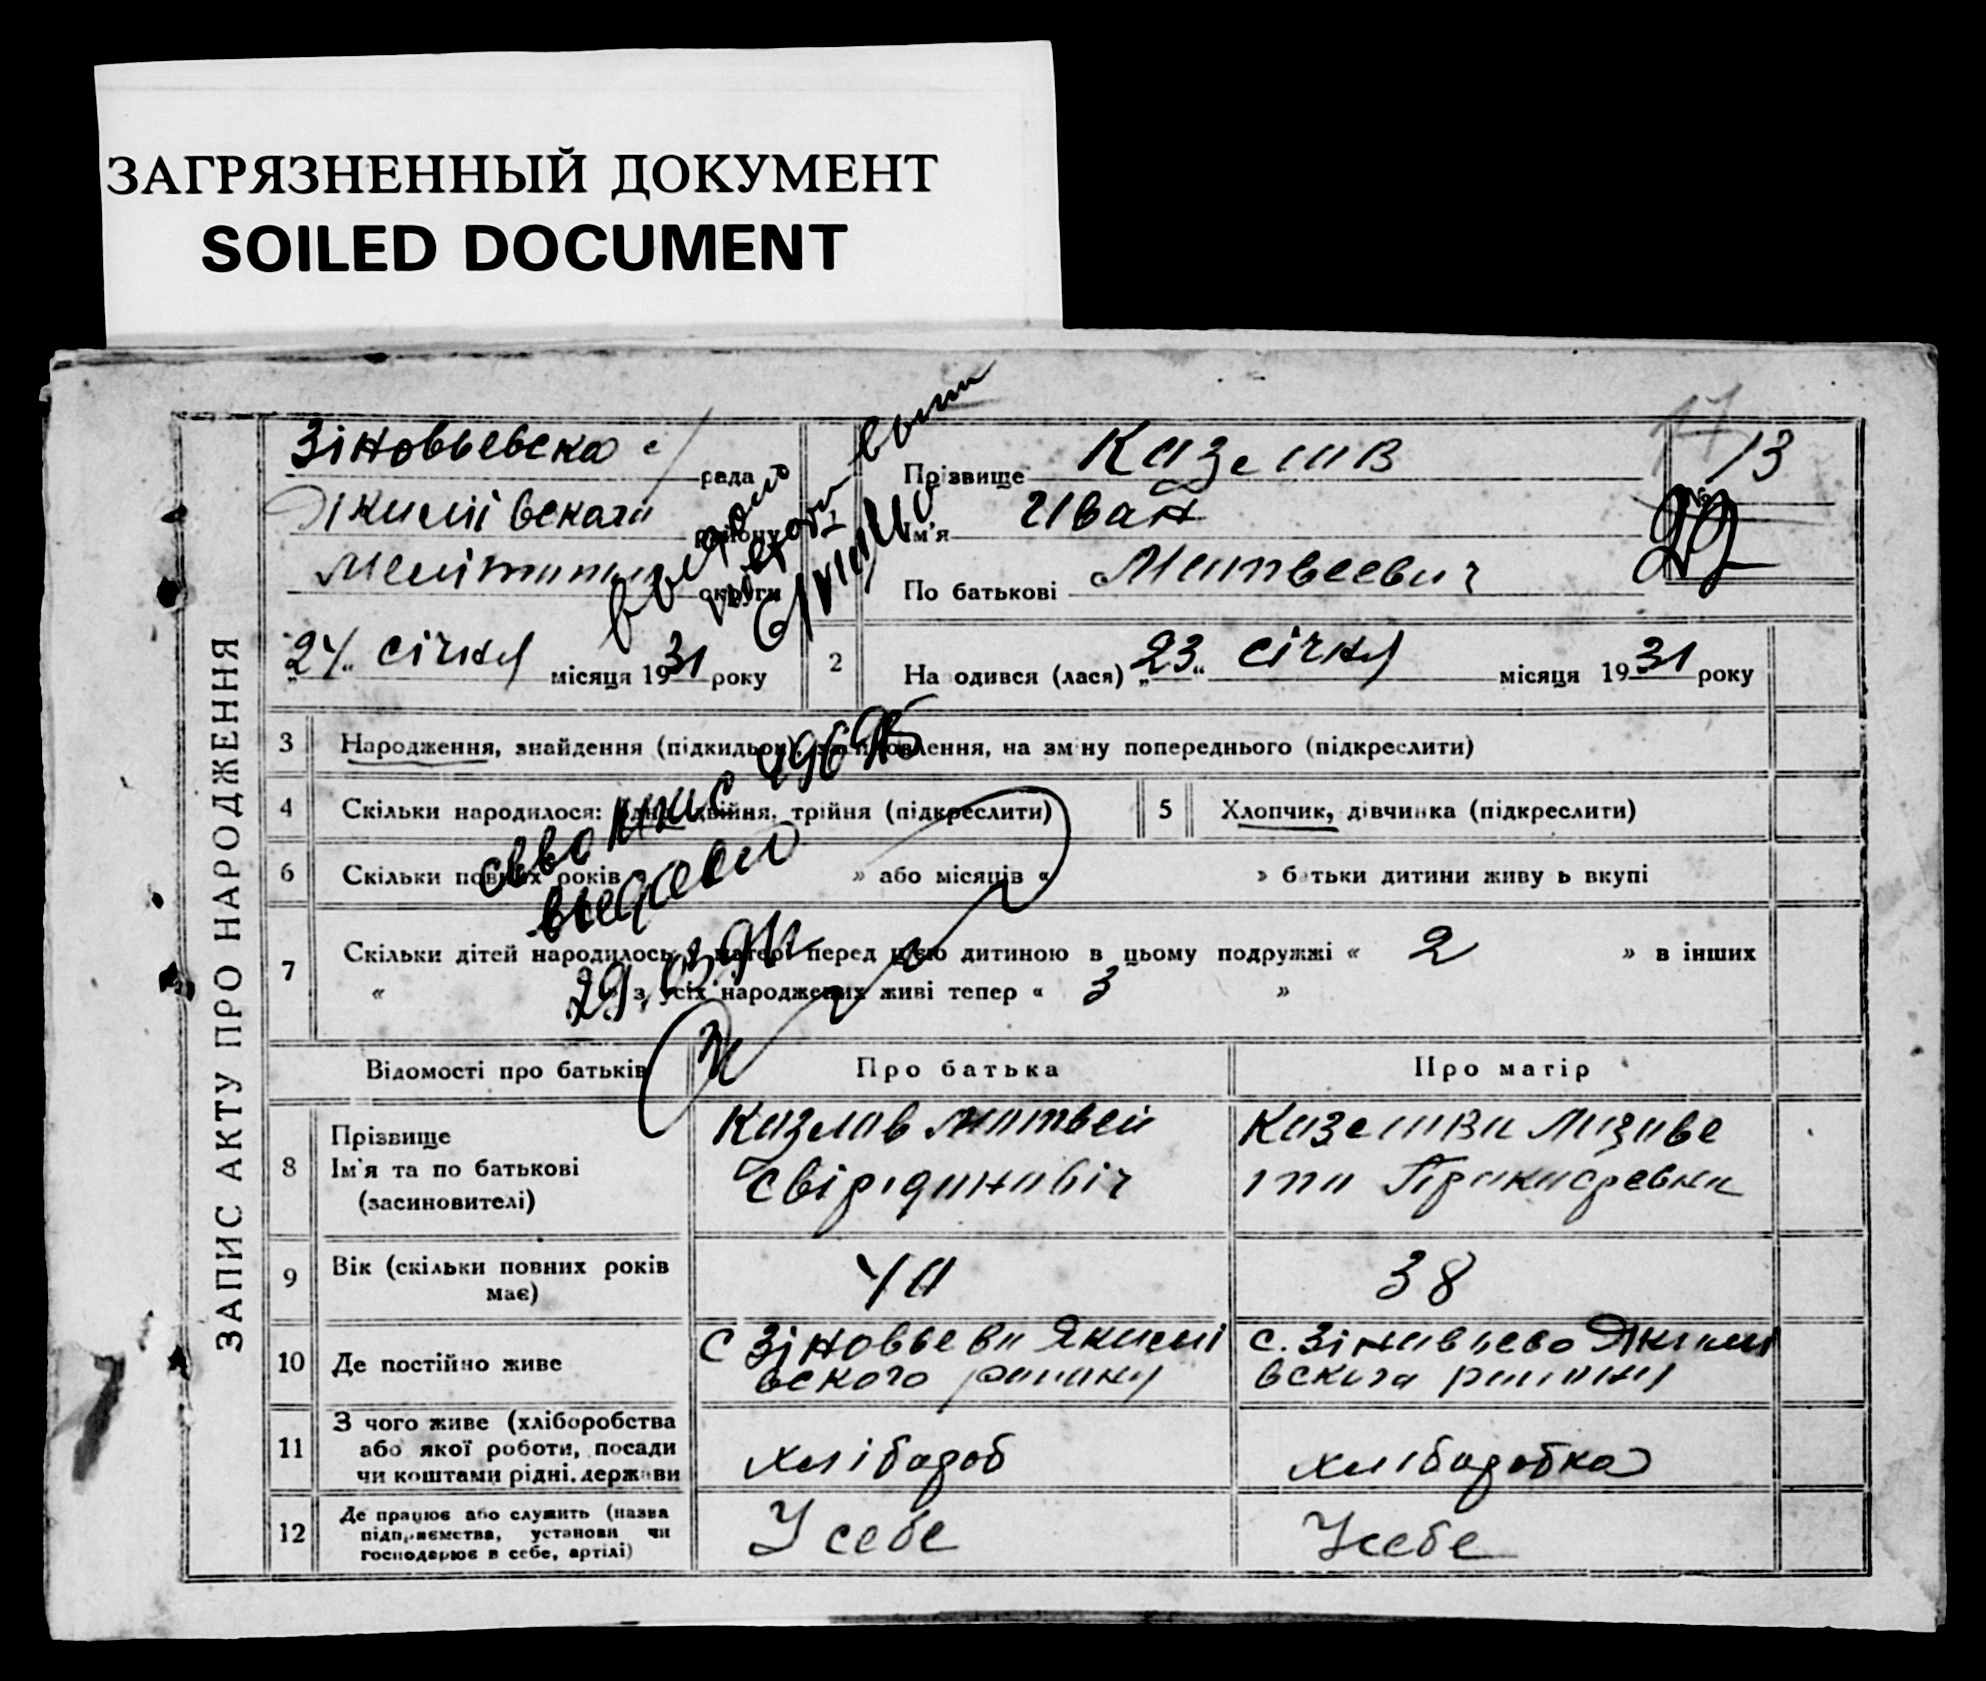 ЗАГРЯЗНЕННЫЙ ДОКУМЕНТ
SOILED DOCUMENT
ЗАПИС АКТУ ПРО НАРОДЖЕННЯ
Зіновьевска рада
району
округи
"24" січня місяця 1931 року
17
13
Прізвище
Ім'я Иван
По батькові Матвеевич
2 На одився (лася) "23" січня місяця 1931 року
3 Народження, знайдення (підкидьок), засиновлення, на зміну попереднього (підкреслити)
4 Скільки народилося: одна, двійня, трійня (підкреслити)
5 Хлопчик, дівчинка (підкреслити)
6 Скільки повних років » або місяців « » батьки дитини живуть вкупі
7 Скільки дітей народилось у матері перед цією дитиною в цьому подружжі « 2 » в інших
« з усіх народжених живі тепер « 3 »
выдано
29.03.91
Відомості про батьків Про батька Про матір
8 Прізвище
Ім'я та по батькові
(засиновителі)
Казлов Матвей
9 Вік (скільки повних років
має)
40 38
10 Де постійно живе
с Зіновьева Якимі
вского
с. Зінавьево Якимі
вскага
11 З чого живе (хліборобства
або якої роботи, посади
чи коштами рідні, держави
хлібароб хлібаробка
12 Де працює або служить (назва
підприємства, установи чи
господарює в себе, артілі)
У себе Усебе